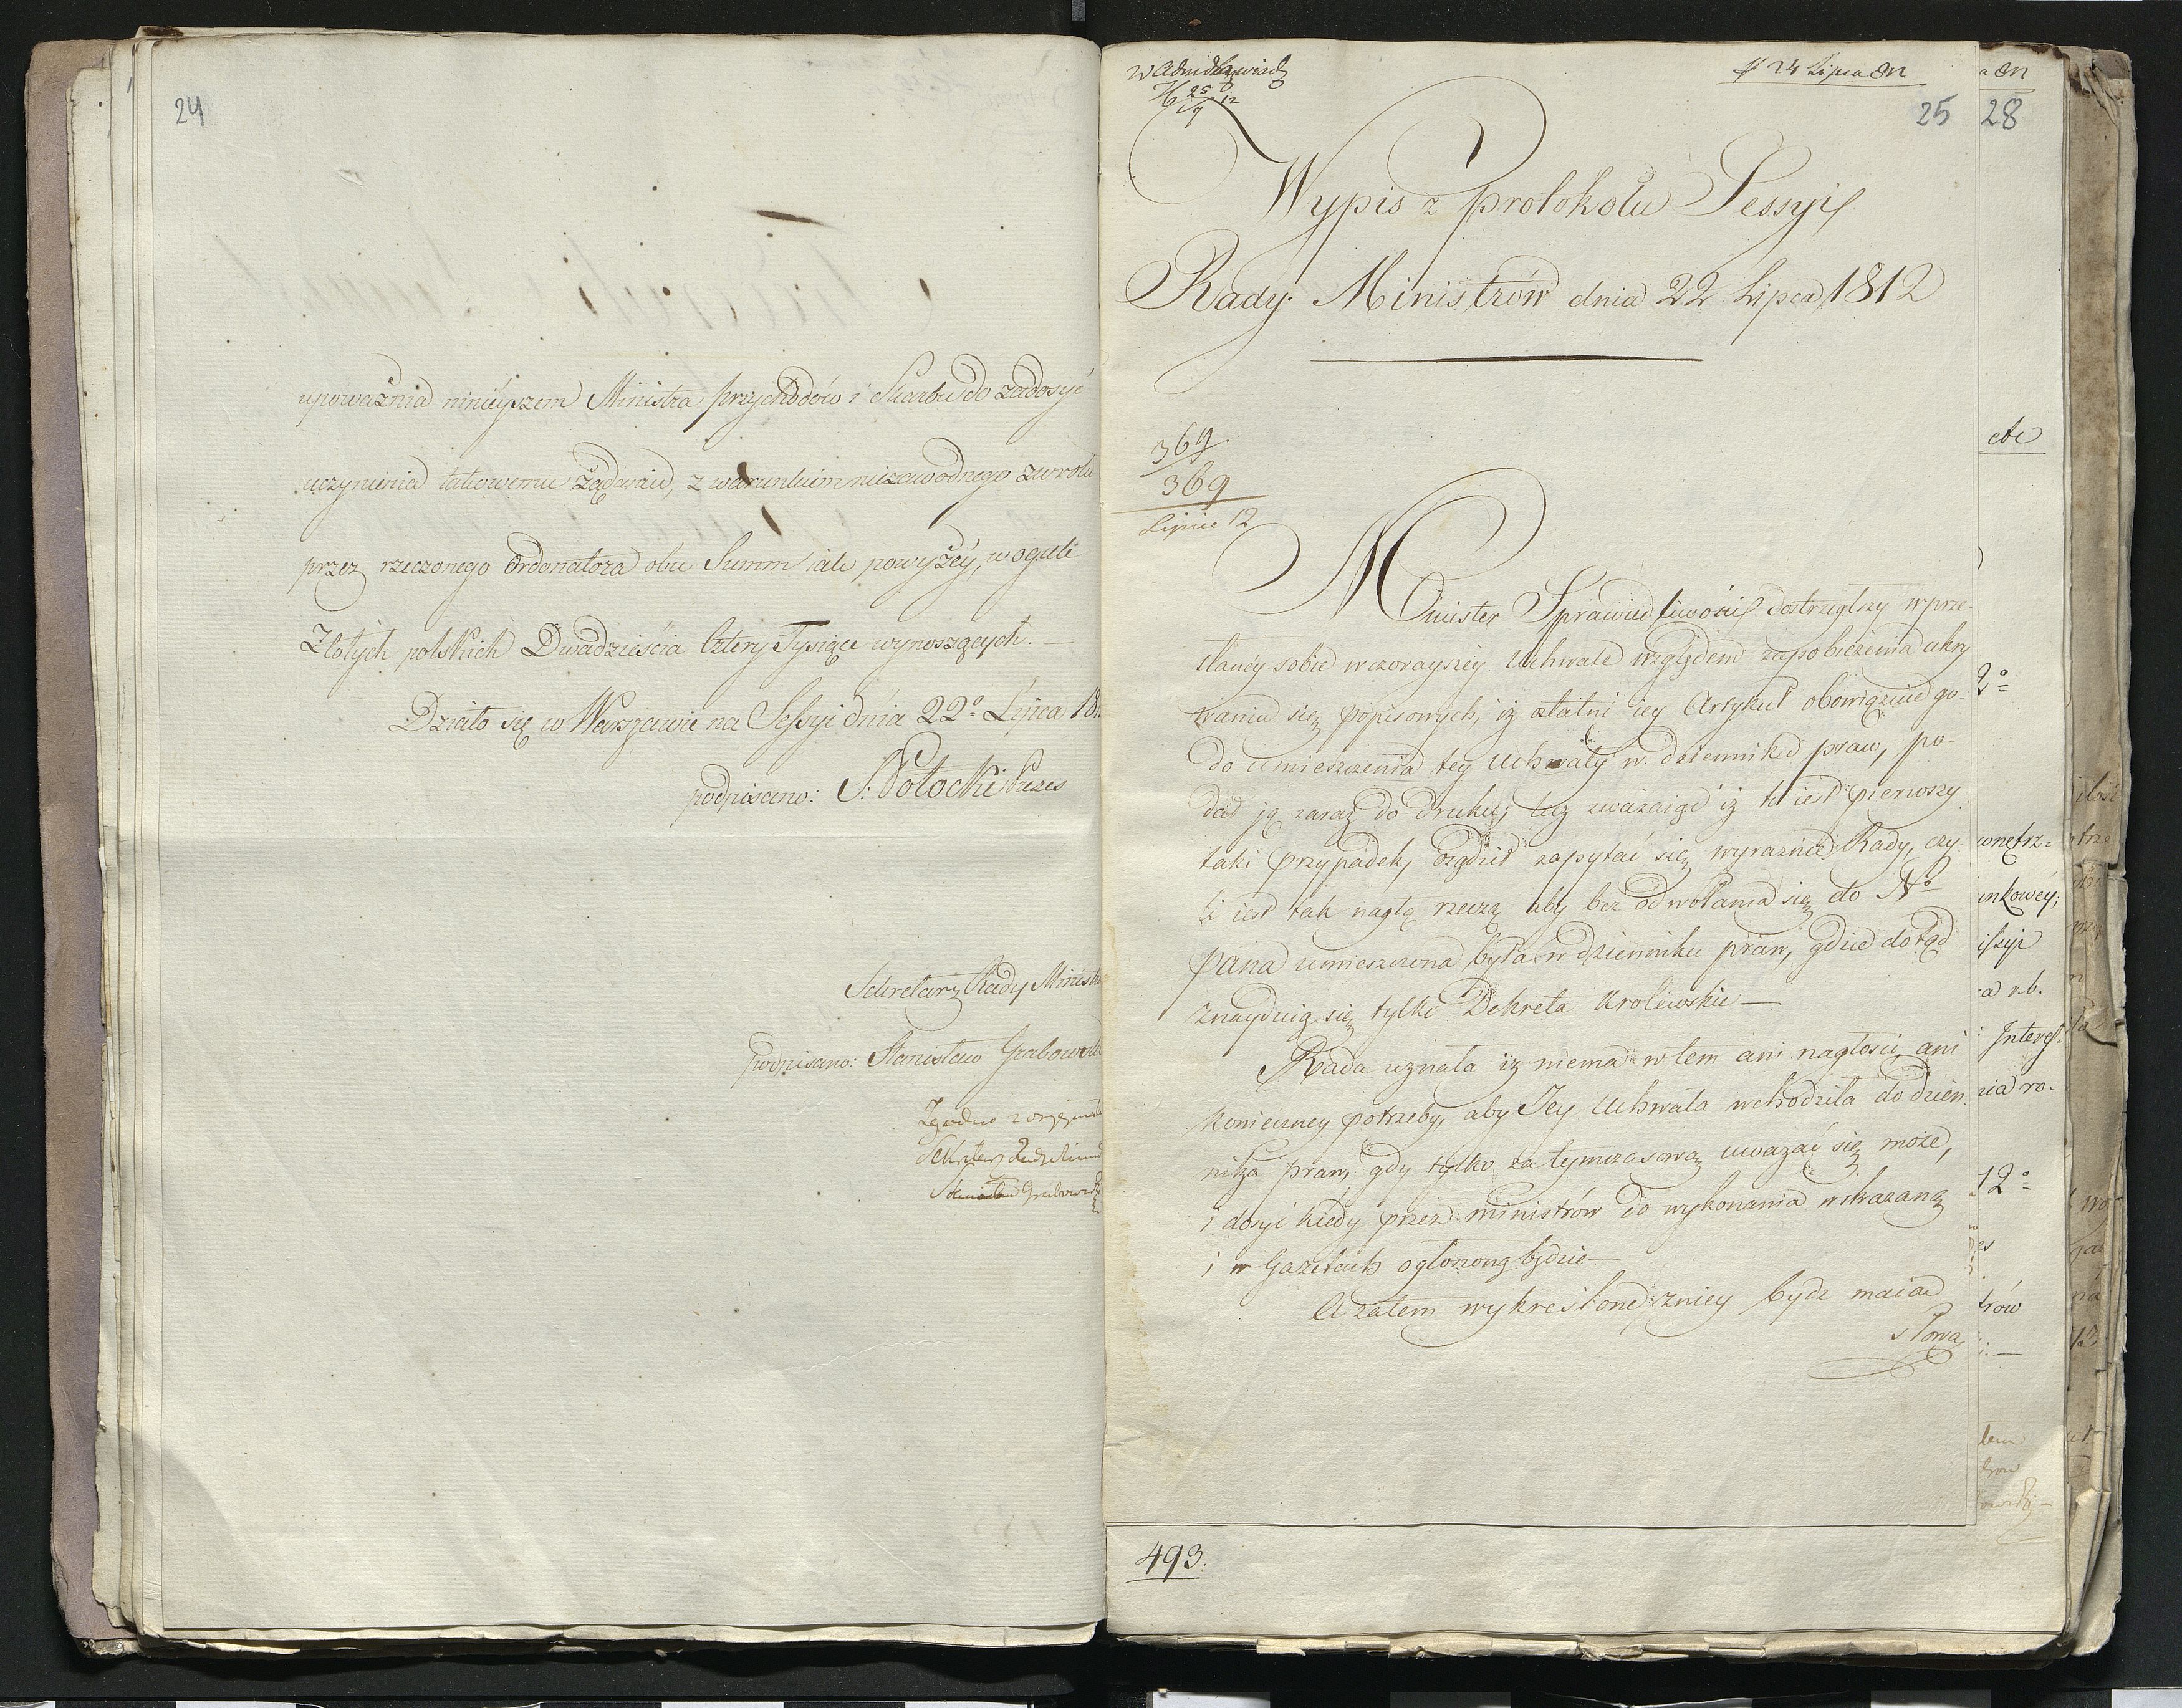 24
upoważnia ninieyszem Ministra Przychodów i Skarbu do zadosyć
uczynienia takowemu żądaniu, z warunkiem niezawodnego zwrotu
przez rzeczonego Ordonatora obu Summ iak powyżéy, w ogule
Złotych polskich Dwadzieścia Cztery Tysiące wynoszących.—
Działo się w Warszawie na Sessyi dnia 22º Lipca 181
podpisano: S. Potocki Prezes
Sekretarz Rady Minist
podpisano: Stanisław Grabowsk
Zgodno z oryginał
Sekretarz Rady
Stanisław Grabowski
24 Lipca 812
25
Wypis z Protokołu Sessyi
Rady Ministrów dnia 22 Lipca 1812
369
369
Lipiec 12
Minister Sprawiedliwości dostrzegłszy w prze-
słanéy sobie wczorayszéy Uchwale względem zapobieżenia ukry
waniu się popisowych, iż ostatni iey Artykuł obowiązuie go-
do umieszczenia tey Uchwały w dzienniku praw, po-
dał ją zaraz do druku; lecz zważaiąc iż to iest pierwszy
taki przypadek, osądził zapytać się wyraźnie Rady, czy-
li iest tak nagłą rzeczą aby bez odwołania się do Nº
Pana umieszczona była w dzienniku praw, gdzie dotąd
znayduią się tylko Dekreta Krolewskie—
Rada uznała iż niema w tem ani nagłości ani
konieczney potrzeby, aby Jey Uchwała wchodziła do dzien-
nika praw, gdy tylko za tymczasową uważać się może,
i dosyć kiedy przez ministrów do wykonania wskazaną
i w Gazetach ogłoszoną będzie—
A zatem wykreślone z niey bydz maią
słowa
493.
a 812
28
etc
2º
wnętrz=
unkowéy;
issyi
a r.b.
Interess
nia ro-
12º
es
trów